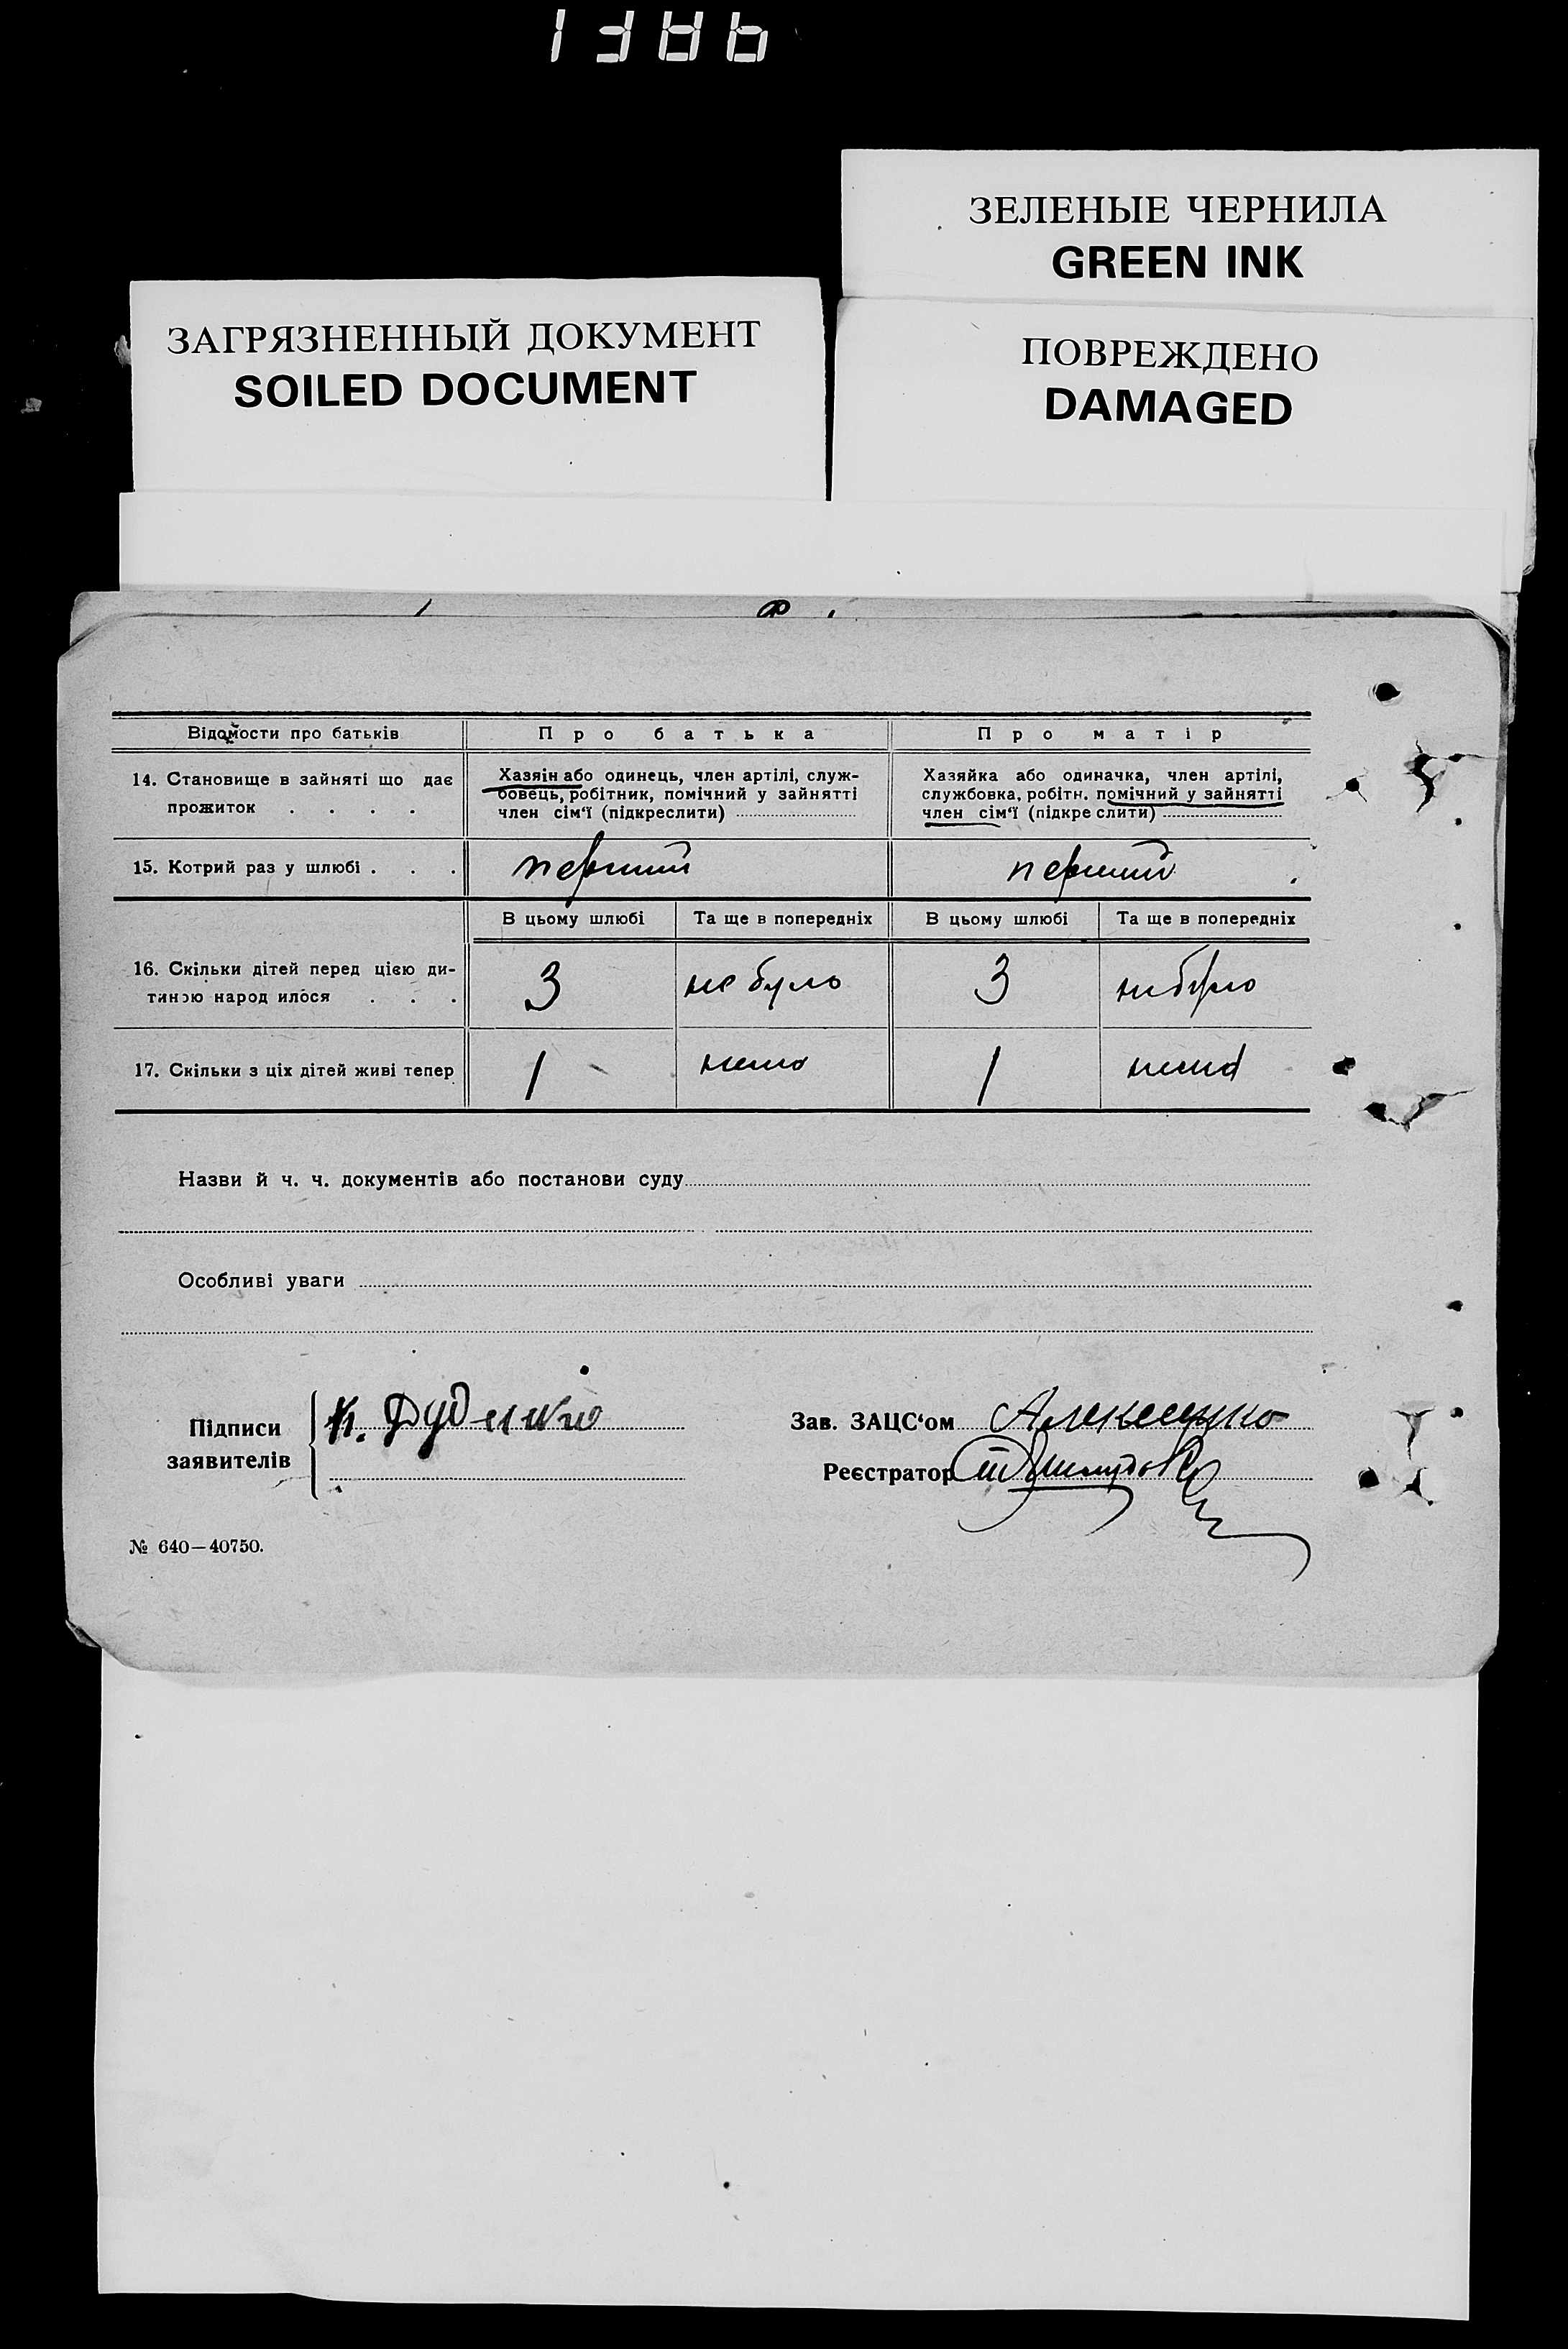 ЗЕЛЕНЫЕ ЧЕРНИЛА
GREEN INK
ЗАГРЯЗНЕННЫЙ ДОКУМЕНТ
SOILED DOCUMENT
ПОВРЕЖДЕНО
DAMAGED
Відомости про батьків
Про батька
Про матір
14. Становище в зайняті що дає
прожиток . . . .
Хазяін або одинець, член артілі, служ-
бовець, робітник, помічний у зайнятті
член сім‘ї (підкреслити)
Хазяйка або одиначка, член артілі,
службовка, робітн. помічний у зайнятті
член сім‘ї (підкреслити)
15. Котрий раз у шлюбі . . .
перший
перший
В цьому шлюбі
Та ще в попередніх
В цьому шлюбі
Та ще в попередніх
16. Скільки дітей перед цією ди-
тиною народилося . . .
3
не було
3
не було
17. Скільки з ціх дітей живі тепер
1
нема
1
нема
Назви й ч. ч. документів або постанови суду
Особливі уваги
Підписи
заявителів
К. Дуденко
Зав. ЗАЦС‘ом
Реєстратор
№ 640—40750.